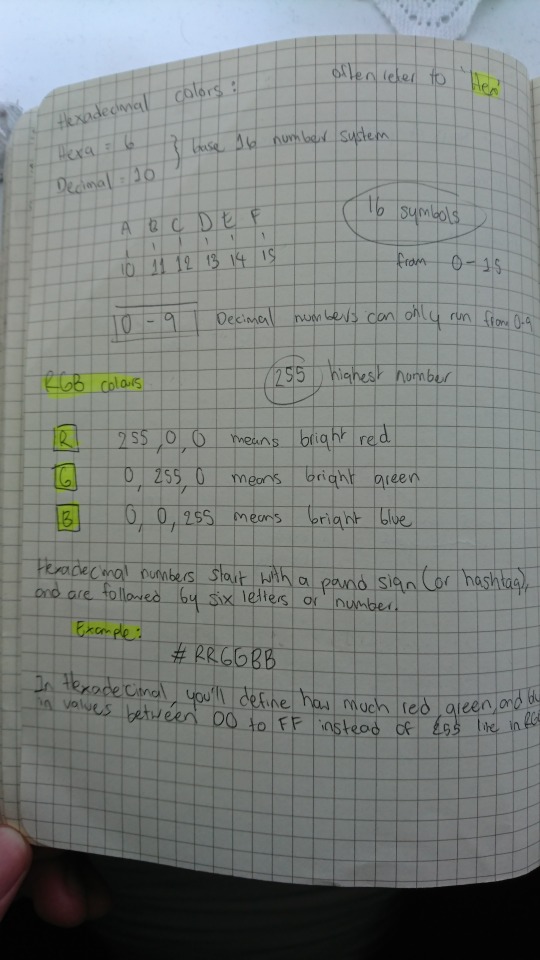 Hexadecimal colors: often refer to 'Hex'
Hexa = 6 } base 16 number system
Decimal = 10
A B C D E F
10 11 12 13 14 15
16 symbols
from 0-15
0-9 Decimal numbers can only run from 0-9
RGB colours 255 highest number
R 255,0,0 means bright red
G 0, 255,0 means bright green
B 0, 0,255 means bright blue
Hexadecimal numbers start with a pand sign (or hashtag),
and are followed by six letters or number.
Example:
#RRGGBB
In Hexadecimal, you'll define how much red green, and
in values between 00 to FF instead of 255 like in